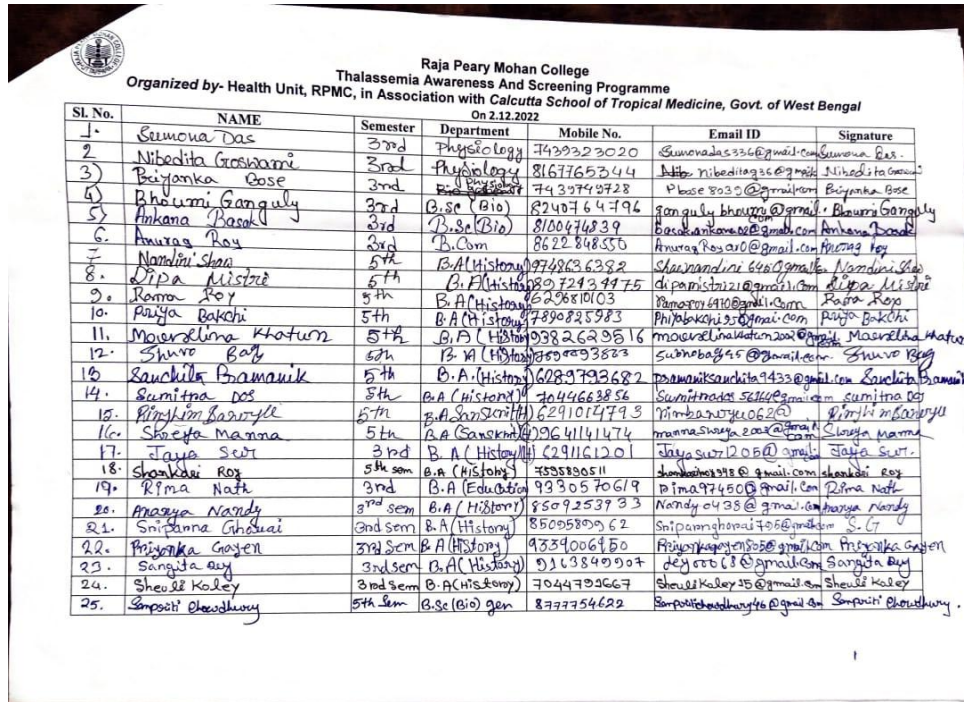 Raja Peary Mohan College
Thalassemia Awareness And Screening Programme
Organized by- Health Unit, RPMC, in Association with Calcutta School of Tropical Medicine, Govt. of West Bengal
On 2.12.2022
Sl. No. NAME Semester Department Mobile No. Email ID Signature
1. Sumona Das 3rd Physiology 7439323020 Sumonadas336@gmail.com Sumona Das.
2 Nibedita Goswami 3rd Physiology 8167765344 nibedita936@gmail Nibedita Goswami
3) Priyanka Bose 3rd Physiology 7439749728 Pbose8039@gmail.com Priyanka Bose
4) Bhoumi Ganguly 3rd B.Sc (Bio) 8240764796 ganguly bhoumi@gmail.com Bhoumi Ganguly
5) Ankana Basak 3rd B.Sc (Bio) 8100474839 basakankana02@gmail.com Ankana Basak
6. Anurag Roy 3rd B.Com 8622848550 AnuragRoyar0@gmail.com Anurag Roy
7 Nandini Shaw 5th B.A (History) 9748636382 Nandini Shaw
8. Dipa Mistri 5th B.A (History) 8972434475 dipamistri21@gmail.com Dipa Mistri
9. Rama Roy 5th B.A (History) 6296810103 ramaroy6970@gmail.com Rama Roy
10. Priya Bakchi 5th B.A (History) 7890825983 Phiyabakchi95@gmai.com Priya Bakchi
11. Khatun 5th B.A (History) 9382629516 Khatun
12. Shuvo Bag 5th B.A (History) Shuvo Bag
13 Sanchita Bramanik 5th B.A. (History) 6289793682 pramaniksanchita9433@gmail.com Sanchita Bramanik
14. Sumitna Dos 5th B.A (History) 7044663856 Sumitnados56164@gmail.com sumitna Dos
15. 5th B.A Sanskrit(H) 6291014793
16. Shreya Manna 5th B.A (Sanskrit)(H) 9641141474 mannashreya2002@gmail.com Shreya Manna
17. Jaya Sur 3rd B.A (History)(H) 6291161201 Jayasur1205@gmail. Jaya Sur.
18. Shankari Roy 5th sem B.A (History) 7595890511 shankari Roy
19. Rima Nath 3rd B.A (Education) 9330570619 rima97450@gmail.com Rima Nath
20. Ananya Nandy 3rd sem B.A (History) 8509253933 Nandy0438@gmail.com Ananya Nandy
21. 3rd sem B.A (History) 8509589962 S. G
22. Priyanka Gayen 3rd sem B.A (History) 9339006950 Priyankagayen805@gmail.com Priyanka Gayen
23. Sangita Dey 3rd sem B.A (History) 9163849907 dey00068@gmail.com Sangita Dey
24. Sheuli Koley 3rd sem B.A (History) 7044791667 SheuliKoley35@gmail.com Sheuli Koley
25. Sampriti Chowdhury 5th Sem B.Sc (Bio) gen 8777754622 Sampriti Chowdhury.